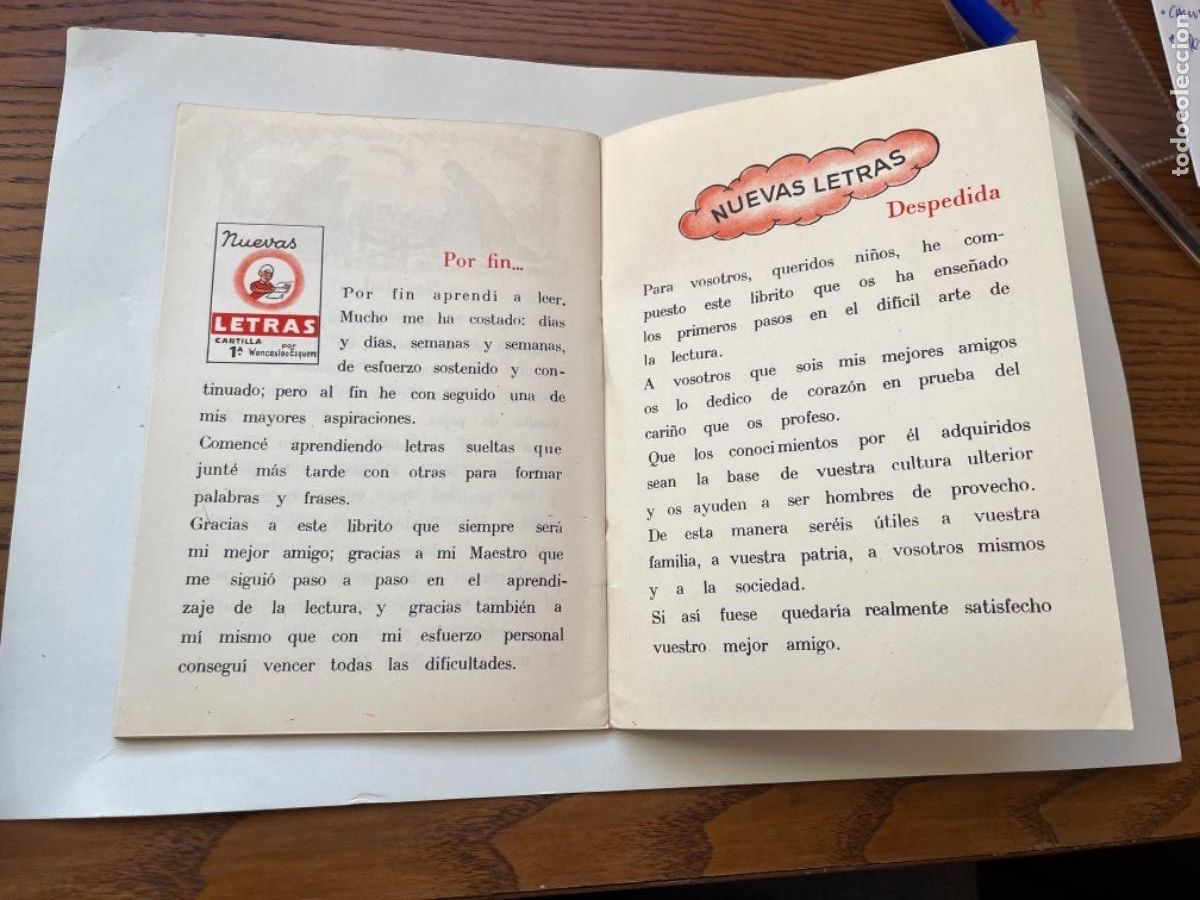 Nuevas
LETRAS
CARTILLA
1ª por Wenceslao Ezquerra
Por fin...
Por fin aprendí a leer.
Mucho me ha costado: días
y días, semanas y semanas,
de esfuerzo sostenido y con-
tinuado; pero al fin he con seguido una de
mis mayores aspiraciones.
Comencé aprendiendo letras sueltas que
junté más tarde con otras para formar
palabras y frases.
Gracias a este librito que siempre será
mi mejor amigo; gracias a mi Maestro que
me siguió paso a paso en el aprendi-
zaje de la lectura, y gracias también a
mí mismo que con mi esfuerzo personal
conseguí vencer todas las dificultades.
NUEVAS LETRAS
Despedida
Para vosotros, queridos niños, he com-
puesto este librito que os ha enseñado
los primeros pasos en el difícil arte de
la lectura.
A vosotros que sois mis mejores amigos
os lo dedico de corazón en prueba del
cariño que os profeso.
Que los conoci mientos por él adquiridos
sean la base de vuestra cultura ulterior
y os ayuden a ser hombres de provecho.
De esta manera seréis útiles a vuestra
familia, a vuestra patria, a vosotros mismos
y a la sociedad.
Si así fuese quedaría realmente satisfecho
vuestro mejor amigo.
todocoleccion